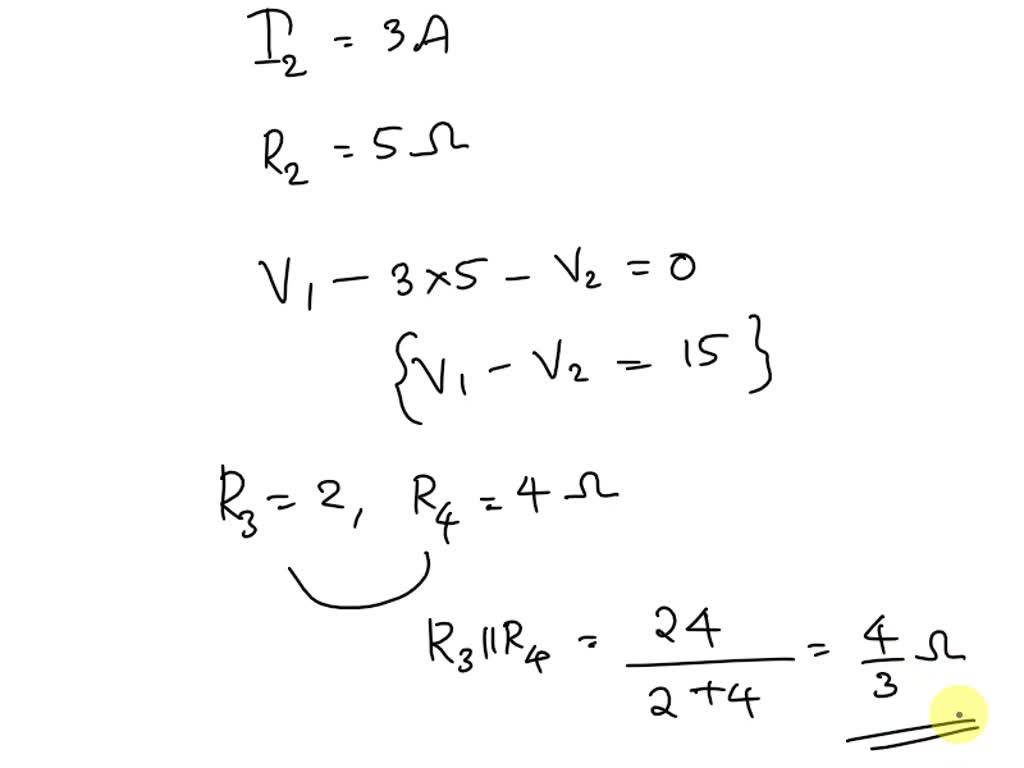 I₂ = 3A
R₂ = 5Ω
V₁ - 3×5 - V₂ = 0
{V₁ - V₂ = 15}
R₃ = 2, R₄ = 4Ω
R₃||R₄ = 24/2+4 = 4/3 Ω